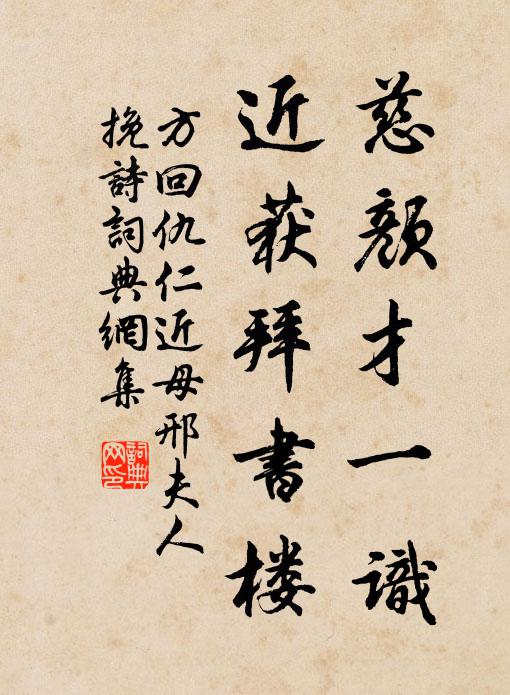 慈顏才一識
近获拜書楼
方回仇仁近母邢夫人
挽詩詞典網集
詞典
网印